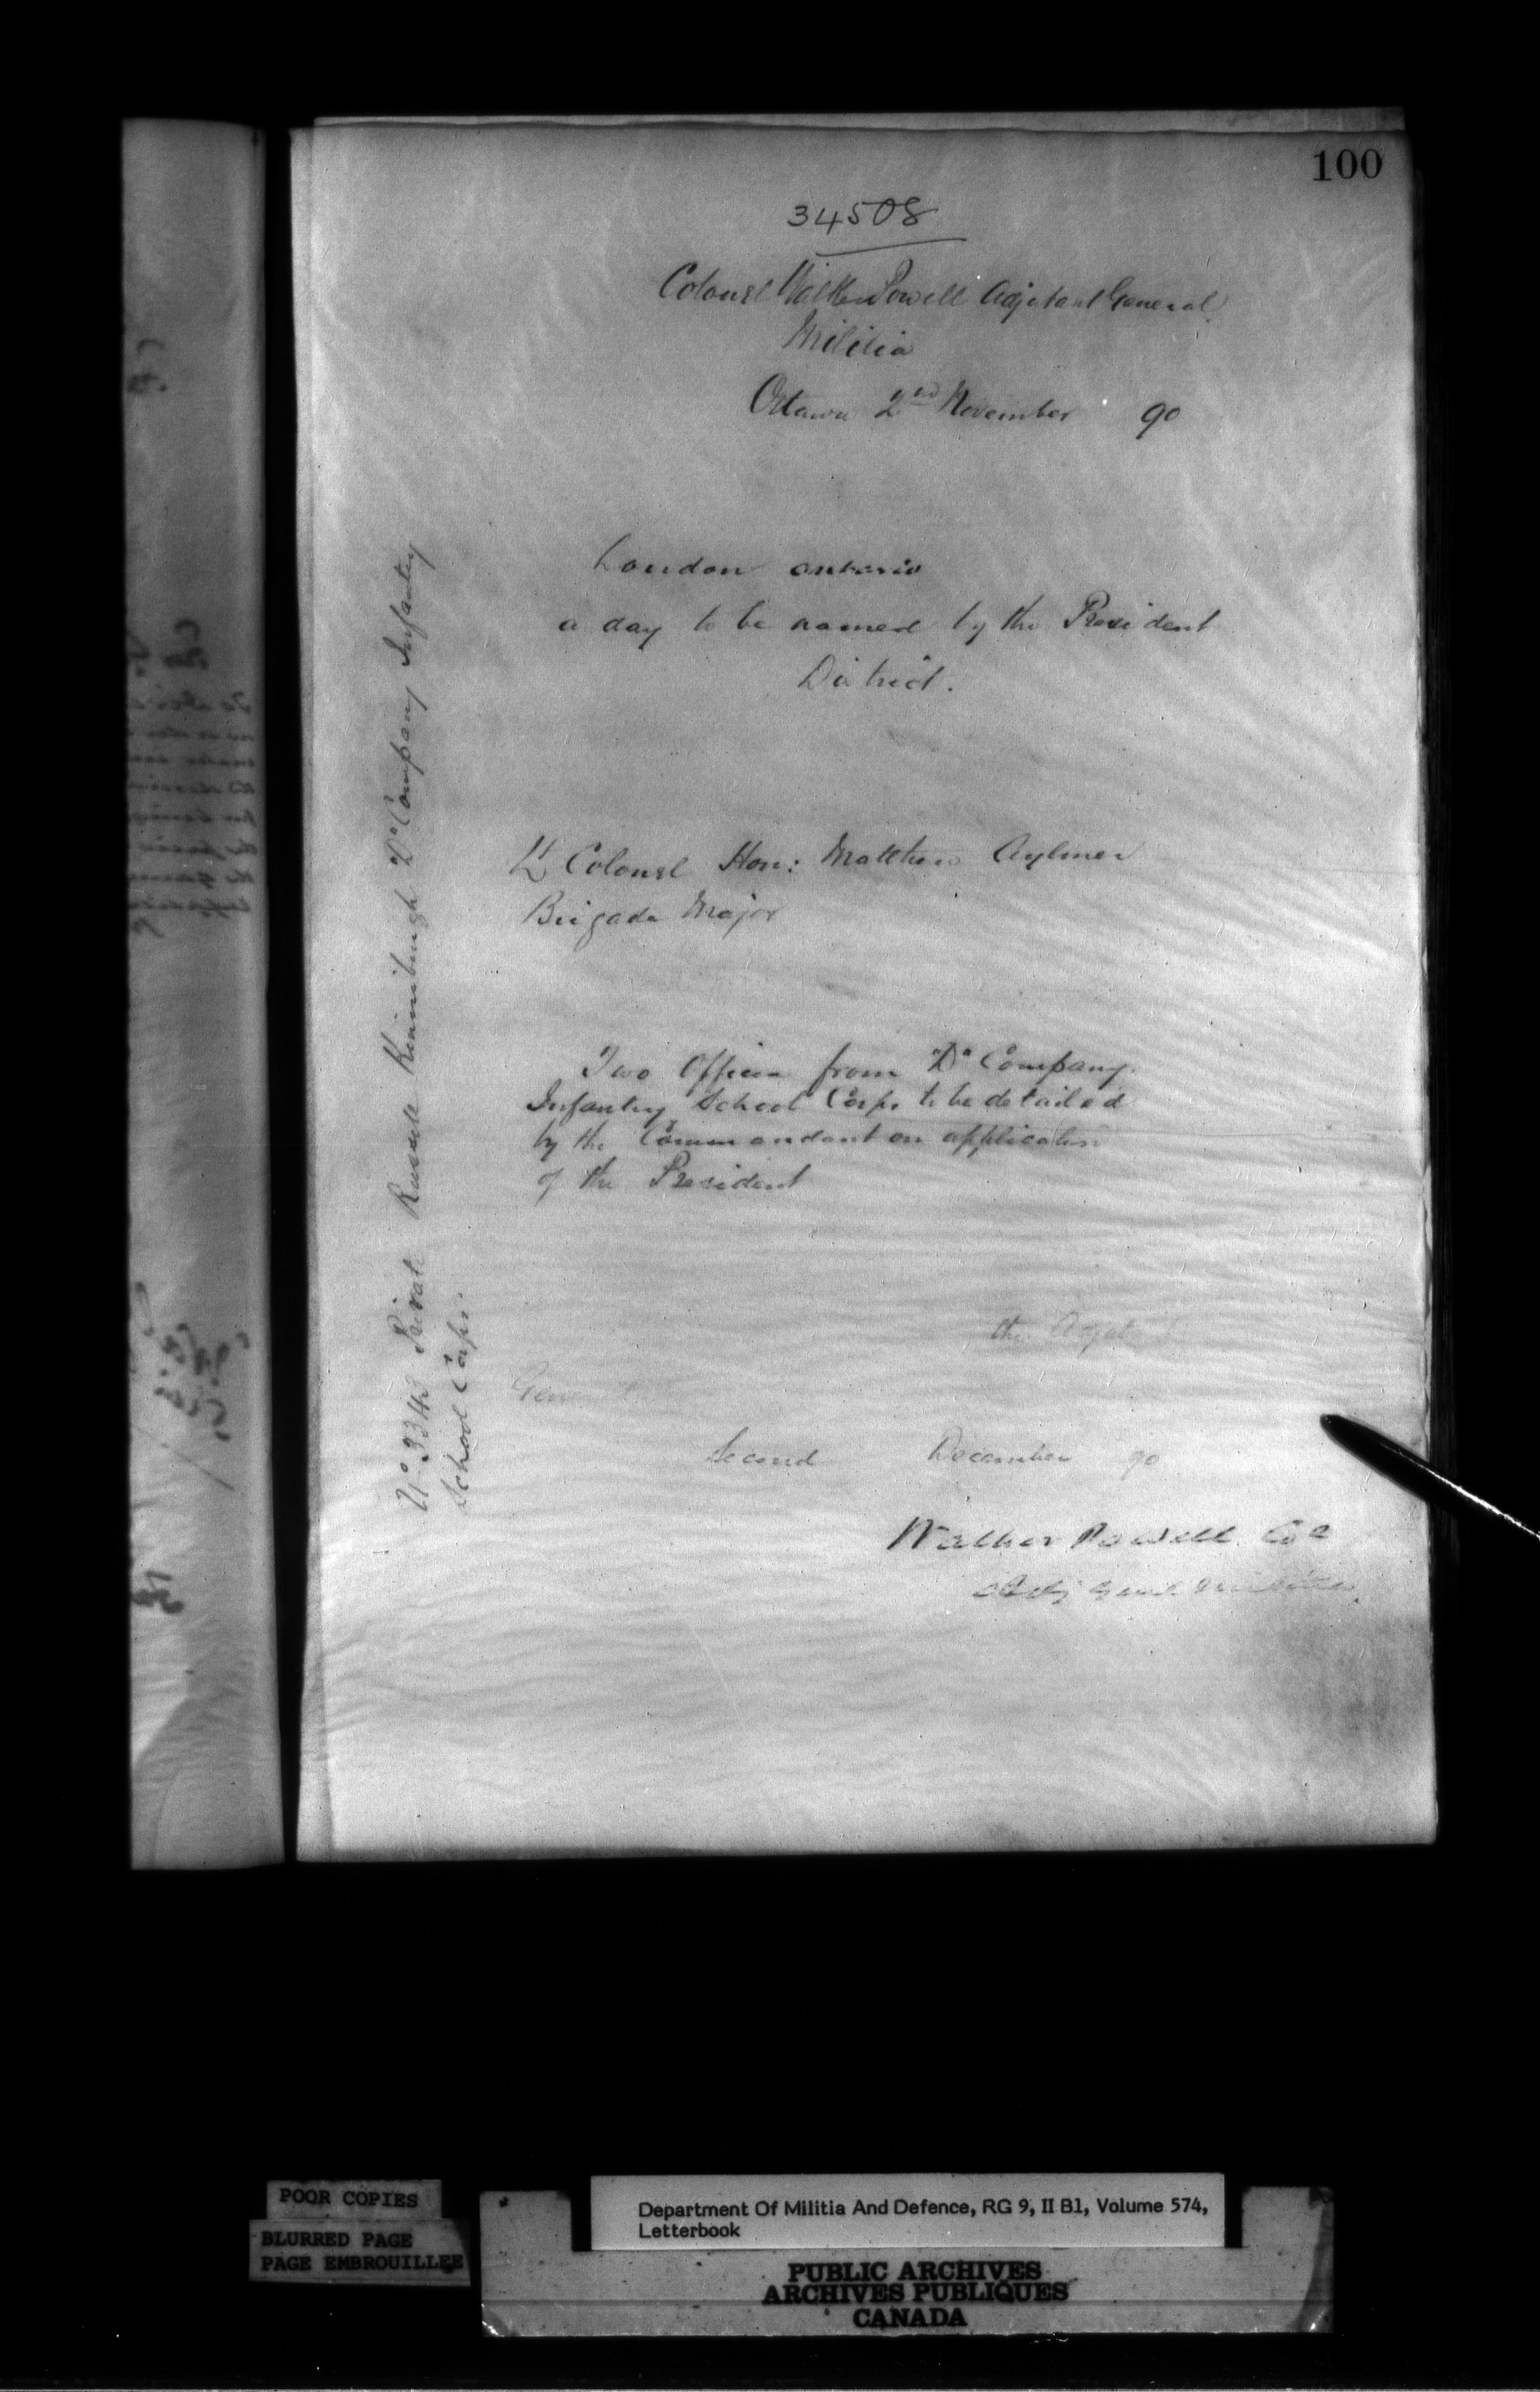 100
34508
Colonel Walker Powell Adjutant General
Militia
Ottawa 2nd November 90
London Ontario
a day to be named by the President
District.
Lt Colonel Hon: Matthew Aylmer
Brigade Major
Two Officers from "D" Company
Infantry School Corps to be detailed
by the Commandant on application
of the President
the Adjut
Gene
Second December 90
Walker Powell Col
Adj Genl Militia
No 3343 Private Russell Kinniburgh "D" Company Infantry
School Corps.
POOR COPIES
BLURRED PAGE
PAGE EMBROUILLEE
Department Of Militia And Defence, RG 9, II B1, Volume 574,
Letterbook
PUBLIC ARCHIVES
ARCHIVES PUBLIQUES
CANADA